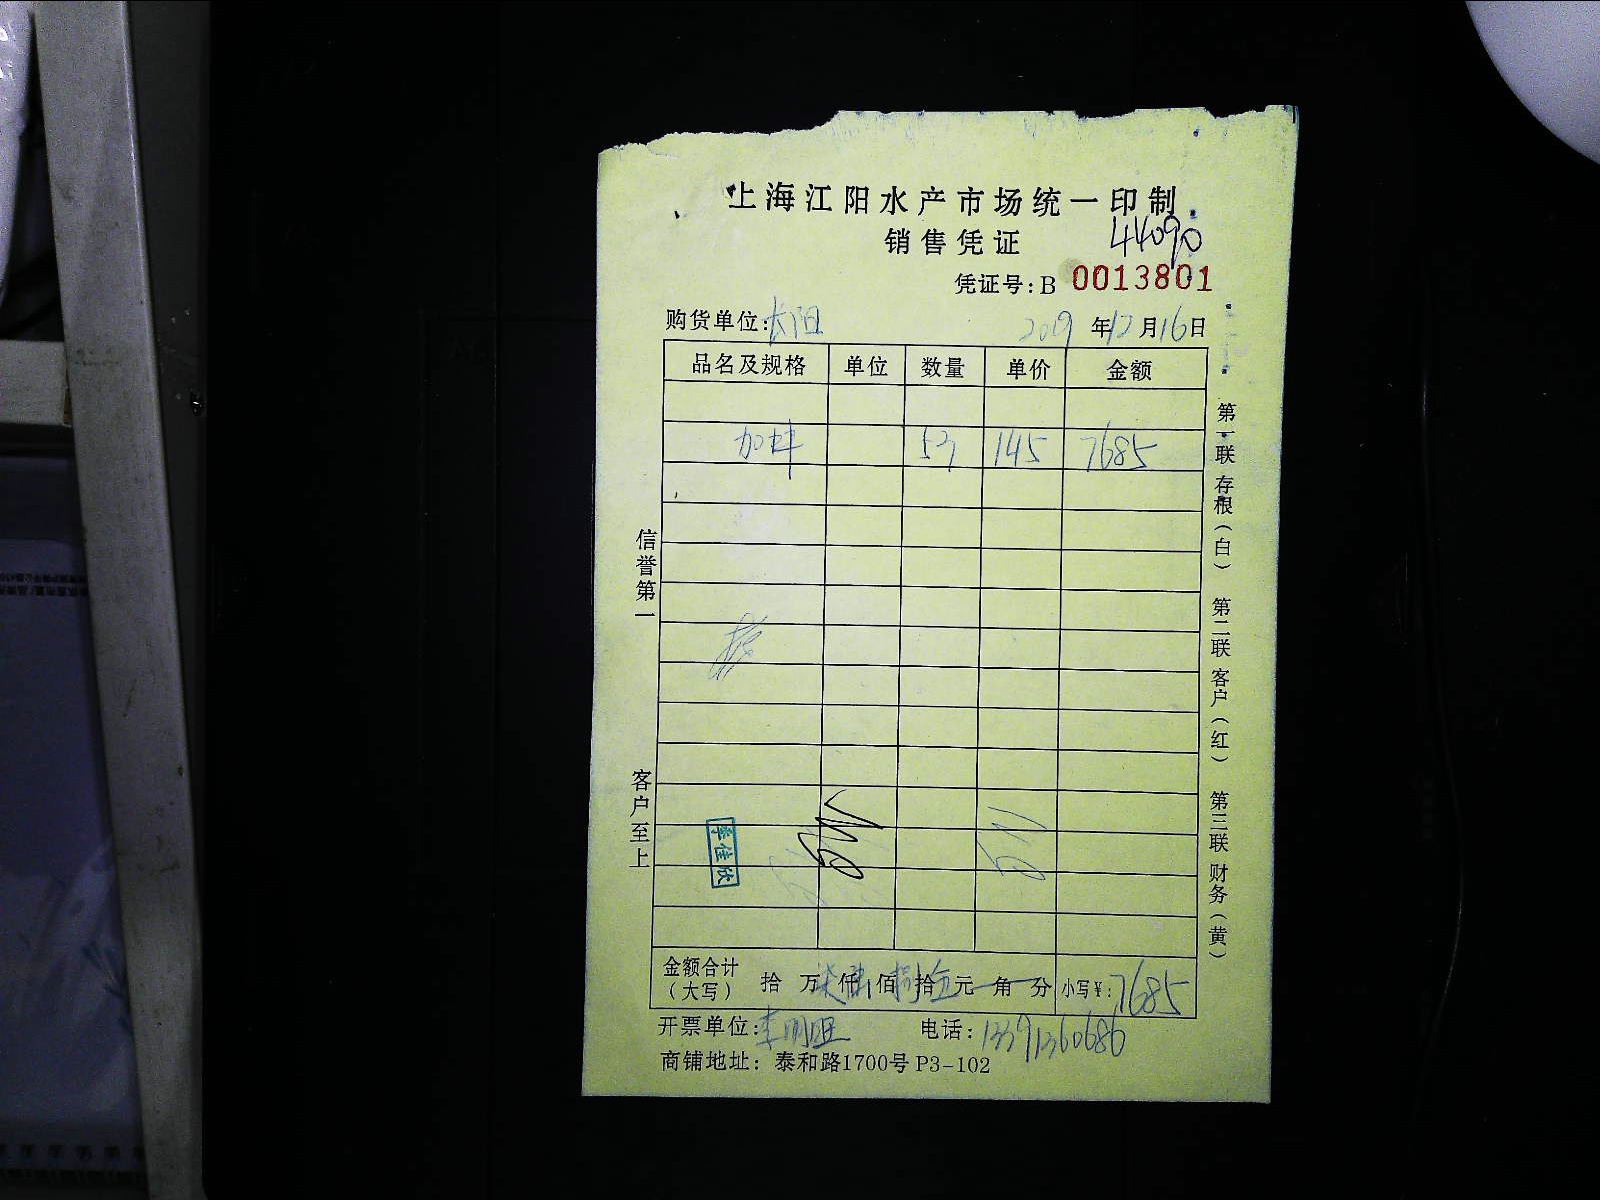 上海江阳水产市场统一印制
销售凭证 44090
凭证号：B 0013801
购货单位：长阳 2019 年 12 月 16 日
品名及规格 单位 数量 单价 金额
加蚌 53 145 7685
信誉第一
客户至上
第一联 存根（白） 第二联 客户（红） 第三联 财务（黄）
李佳欣
金额合计（大写） 拾 万 柒 仟 陆 佰 捌 拾 伍 元 角 分 小写￥：7685
开票单位：李明旺 电话：13391360686
商铺地址：泰和路1700号 P3-102